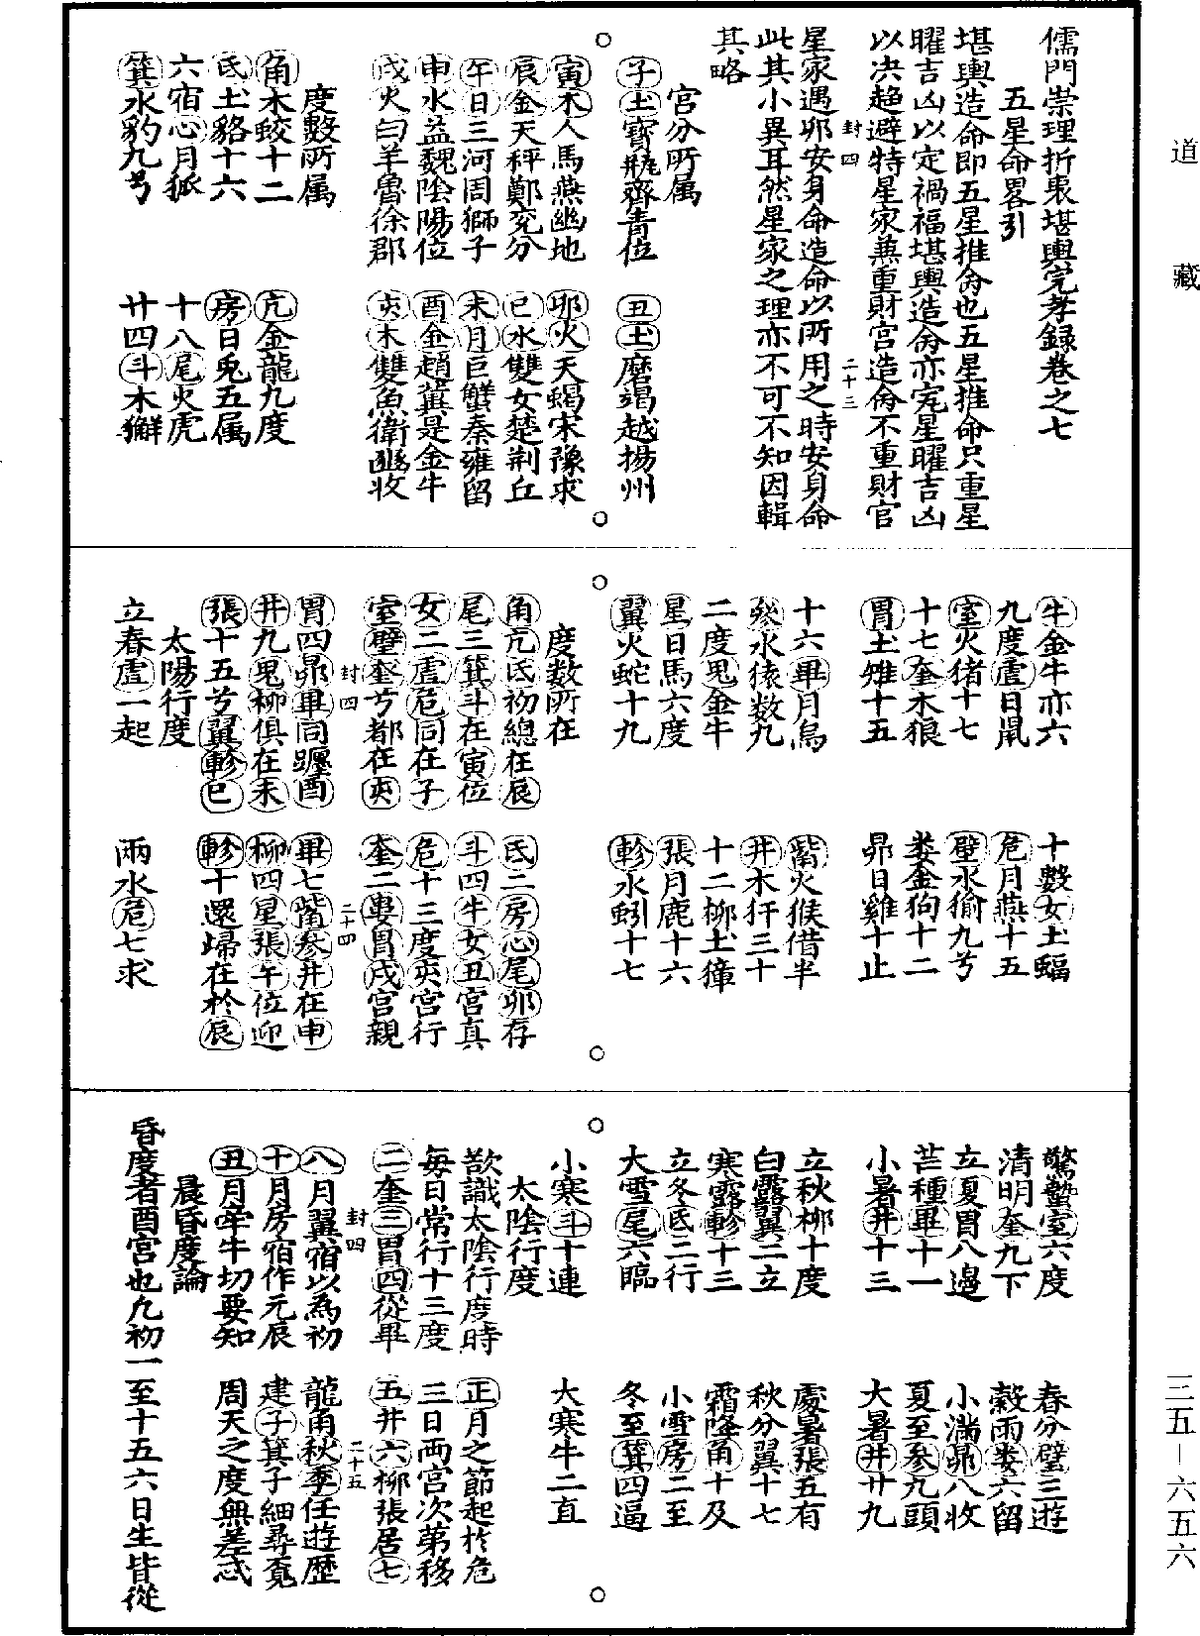 道藏
儒門崇理折衷堪輿完孝錄卷之七
五星命畧引
堪輿造命即五星推命也五星推命只重星
曜吉凶以定禍福堪輿造命亦宪星曜吉凶
以决趋避特星家兼重財官造命不重財官
封四 二十三
星家遇卯安身命造命以所用之時安身命
此其小異耳然星家之理亦不可不知因輯
其略
宮分所属
子土寶瓶齊青位 丑土磨竭越揚州
寅木人馬燕幽地 卯火天蝎宋豫求
辰金天秤鄭兖分 巳水雙女楚荆丘
午日三河周獅子 未月巨蟹秦雍留
申水益魏陰陽位 酉金趙冀是金牛
戌火白羊魯徐郡 亥木雙魚衛豳收
度數所属
角木蛟十二 亢金龍九度
氐土貉十六 房日兎五属
六宿心月狐 十八尾火虎
箕水豹九兮 廿四斗木獬
牛金牛亦六 十數女土蝠
九度虛日鼠 危月燕十五
室火猪十七 壁水㺄九兮
十七奎木狼 娄金狗十二
胃土雉十五 昴日雞十止
十六畢月烏 觜火猴借半
參水猿数九 井木犴三十
二度鬼金牛 十二柳土獐
星日馬六度 張月鹿十六
翼火蛇十九 軫水蚓十七
度数所在
角亢氐初總在辰 氐二房心尾卯存
尾三箕斗在寅位 斗四牛女丑宮真
女二虛危同在子 危十三度亥宮行
室壁奎兮都在亥 奎二婁胃戌宮親
封四 二十四
胃四昴畢同躔酉 畢七觜參井在申
井九鬼柳俱在未 柳四星張午位迎
張十五兮翼軫巳 軫十還歸在於辰
太陽行度
立春虛一起 雨水危七求
驚蟄室六度 春分壁三遊
清明奎九下 穀雨娄六留
立夏胃八邊 小滿昴八收
芒種畢十一 夏至参九頭
小暑井十三 大暑井廿九
立秋柳十度 處暑張五有
白露翼二立 秋分翼十七
寒露軫十三 霜降角十及
立冬氐二行 小雪房二至
大雪尾六臨 冬至箕四逼
小寒斗十連 大寒牛二直
太陰行度
欲識太陰行度時 正月之節起於危
每日常行十三度 三日兩宮次第移
二奎三胃四從畢 五井六柳張居七
封四 二十五
八月翼宿以為初 龍角秋季任遊歷
十月房宿作元辰 建子箕子細尋覔
丑月牽牛切要知 周天之度無差忒
晨昏度論
昏度者酉宮也凢初一至十五六日生皆從
三五－六五六